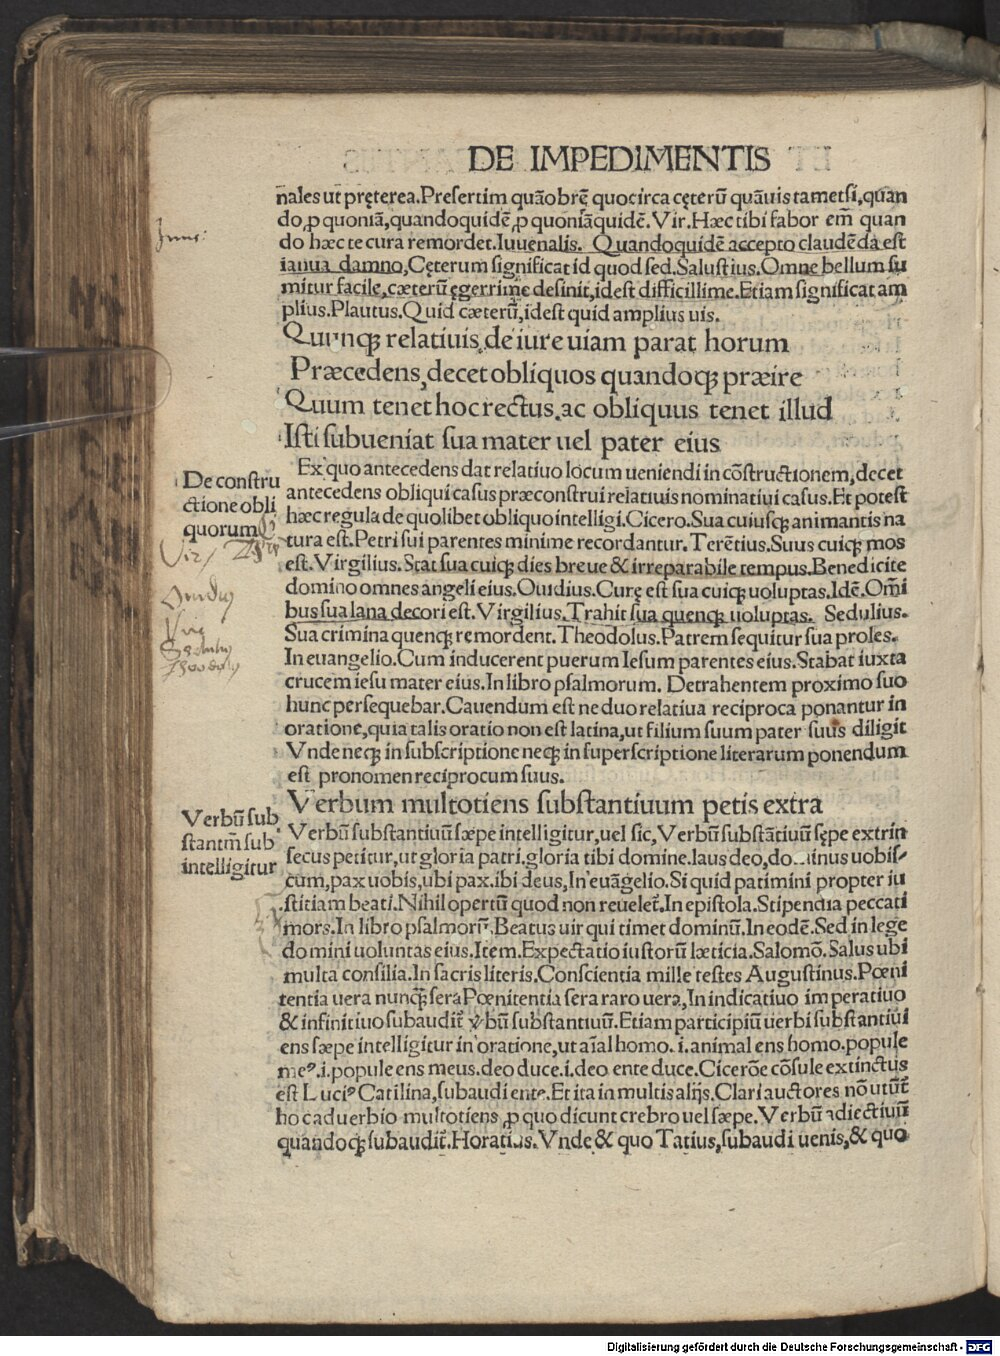 DE IMPEDIMENTIS
nales ut pręterea.Presertim quāobrē quocirca cęterū quāuis tametsi,quan
do,ꝓ quoniā,quandoquidē,ꝓ quoniāquidē.Vir.Hæc tibi fabor em̄ quan
do hæc te cura remordet.Iuuenalis. Quandoquidē accepto claudēda est
ianua damno,Cęterum significat id quod sed.Salustius.Omne bellum su
mitur facile,cæterū ęgerrime desinit,idest difficillime.Etiam significat am
plius.Plautus.Quid cæterū,idest quid amplius uis.
Quunqꝫ relatiuis de iure uiam parat horum
Præcedens,decet obliquos quandoqꝫ præire
Quum tenet hoc rectus.ac obliquus tenet illud
Isti subueniat sua mater uel pater eius
De constru
ctione obli
quorum
Ex quo antecedens dat relatiuo locum ueniendi in cōstructionem,decet
antecedens obliqui casus præconstrui relatiuis nominatiui casus.Et potest
hæc regula de quolibet obliquo intelligi.Cicero.Sua cuiusqꝫ animantis na
tura est.Petri sui parentes minime recordantur.Terētius.Suus cuiqꝫ mos
est.Virgilius.Stat sua cuiqꝫ dies breue & irreparabile tempus.Benedicite
domino omnes angeli eius.Ouidius.Curę est sua cuiqꝫ uoluptas.Idē.Om̄i
bus sua lana decori est.Virgilius.Trahit sua quenqꝫ uoluptas. Sedulius.
Sua crimina quenqꝫ remordent.Theodolus.Patrem sequitur sua proles.
In euangelio.Cum inducerent puerum Iesum parentes eius.Stabat iuxta
crucem iesu mater eius.In libro psalmorum. Detrahentem proximo suo
hunc persequebar.Cauendum est ne duo relatiua reciproca ponantur in
oratione,quia talis oratio non est latina,ut filium suum pater suus diligit
Vnde neqꝫ in subscriptione neqꝫ in superscriptione literarum ponendum
est pronomen reciprocum suus.
Verbum multotiens substantiuum petis extra
Verbū sub
stantm̄ sub
intelligitur
Verbū substantiuū sæpe intelligitur,uel sic,Verbū substātiuū sępe extrin
secus petitur,ut gloria patri.gloria tibi domine.laus deo,dominus uobis-
cum,pax uobis,ubi pax.ibi deus,In euāgelio.Si quid patimini propter iu
stitiam beati.Nihil opertū quod non reuelet᷑.In epistola.Stipendia peccati
mors.In libro psalmorū.Beatus uir qui timet dominū.In eodē.Sed in lege
domini uoluntas eius.Item.Expectatio iustorū læticia.Salomō.Salus ubi
multa consilia.In sacris literis.Conscientia mille testes Augustinus.Pœni
tentia uera nunqꝫ sera Pœnitentia sera raro uera,In indicatiuo imperatiuo
& infinitiuo subaudit᷑ ỽbū substantiuū.Etiam participiū uerbi substantiui
ens sæpe intelligitur in oratione,ut aīal homo.i.animal ens homo.popule
meꝰ.i.popule ens meus.deo duce.i.deo ente duce.Cicerōe cōsule extinctus
est Luciꝰ Catilina,subaudi ente.Et ita in multis alijs.Clari auctores nō utūt᷑
hoc aduerbio multotiens ꝓ quo dicunt crebro uel sæpe.Verbū adiectiuū
quandoqꝫ subaudit᷑.Horatius.Vnde & quo Tatius,subaudi uenis,& quo
Digitalisierung gefördert durch die Deutsche Forschungsgemeinschaft - DFG